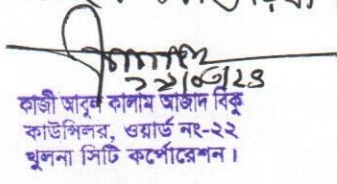 ২২/০৫/২৪
কাজী আবুল কালাম আজাদ বিকু
কাউন্সিলর, ওয়ার্ড নং-২২
খুলনা সিটি কর্পোরেশন।